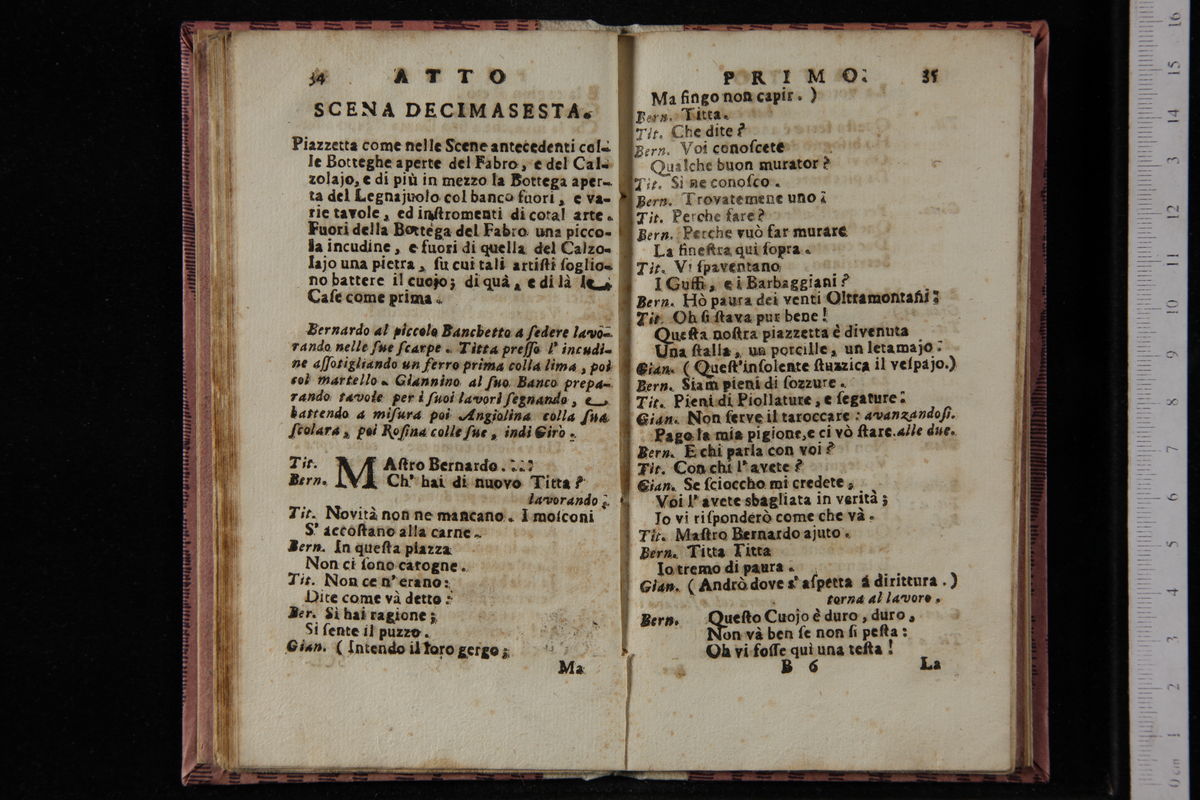 34 ATTO
SCENA DECIMASESTA.
Piazzetta come nelle Scene antecedenti col-
le Botteghe aperte del Fabro, e del Cal-
zolajo, e di più in mezzo la Bottega aper-
ta del Legnajuolo col banco fuori, e va-
rie tavole, ed inſtromenti di cotal arte.
Fuori della Bottega del Fabro una picco-
la incudine, e fuori di quella del Calzo-
lajo una pietra, ſu cui tali artiſti ſoglio-
no battere il cuojo; di quà, e di là le
Caſe come prima.
Bernardo al piccolo Banchetto a ſedere lavo-
rando nelle ſue ſcarpe. Titta preſſo l' incudi-
ne aſſotigliando un ferro prima colla lima, poi
col martello. Giannino al ſuo Banco prepa-
rando tavole per i ſuoi lavori ſegnando, e
battendo a miſura poi Angiolina colla ſua
ſcolara, poi Roſina colle ſue, indi Girò.
Tit. MAſtro Bernardo. . . .
Bern. Ch' hai di nuovo Titta?
lavorando.
Tit. Novità non ne mancano. I moſconi
S' accoſtano alla carne.
Bern. In queſta piazza
Non ci ſono carogne.
Tit. Non ce n' erano:
Dite come và detto.
Ber. Sì hai ragione;
Si ſente il puzzo.
Gian. (Intendo il loro gergo;
Ma
PRIMO. 35
Ma fingo non capir. )
Bern. Titta.
Tit. Che dite?
Bern. Voi conoſcete
Qualche buon murator?
Tit. Sì ne conoſco.
Bern. Trovatemene uno.
Tit. Perche fare?
Bern. Perche vuò far murare
La fineſtra qui ſopra.
Tit. Vi ſpaventano
I Guffi, e i Barbaggiani?
Bern. Hò paura dei venti Oltramontani;
Tit. Oh ſi ſtava pur bene!
Queſta noſtra piazzetta è divenuta
Una ſtalla, un porcille, un letamajo.
Gian. ( Queſt'inſolente ſtuzzica il veſpajo.)
Bern. Siam pieni di ſozzure.
Tit. Pieni di Piollature, e ſegature.
Gian. Non ſerve il taroccare: avanzandoſi.
Pago la mia pigione, e ci vò ſtare. alle due.
Bern. E chi parla con voi?
Tit. Con chi l' avete?
Gian. Se ſcioccho mi credete,
Voi l' avete sbagliata in verità;
Io vi riſponderò come che và.
Tit. Maſtro Bernardo ajuto.
Bern. Titta Titta
Io tremo di paura.
Gian. ( Andrò dove s' aſpetta á dirittura. )
torna al lavoro.
Bern. Queſto Cuojo è duro, duro,
Non và ben ſe non ſi peſta:
Oh vi foſſe quì una teſta!
B 6 La
0 cm 1 2 3 4 5 6 7 8 9 10 11 12 13 14 15 16